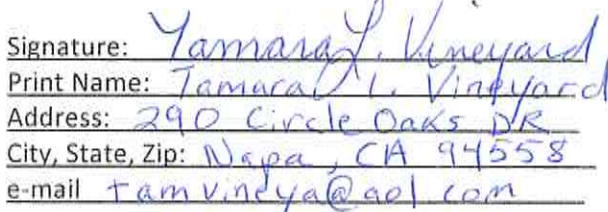 Signature: Tamara L. Vineyard
Print Name: Tamara L. Vineyard
Address: 290 Circle Oaks DR
City, State, Zip: Napa, CA 94558
e-mail tamvineya@aol.com